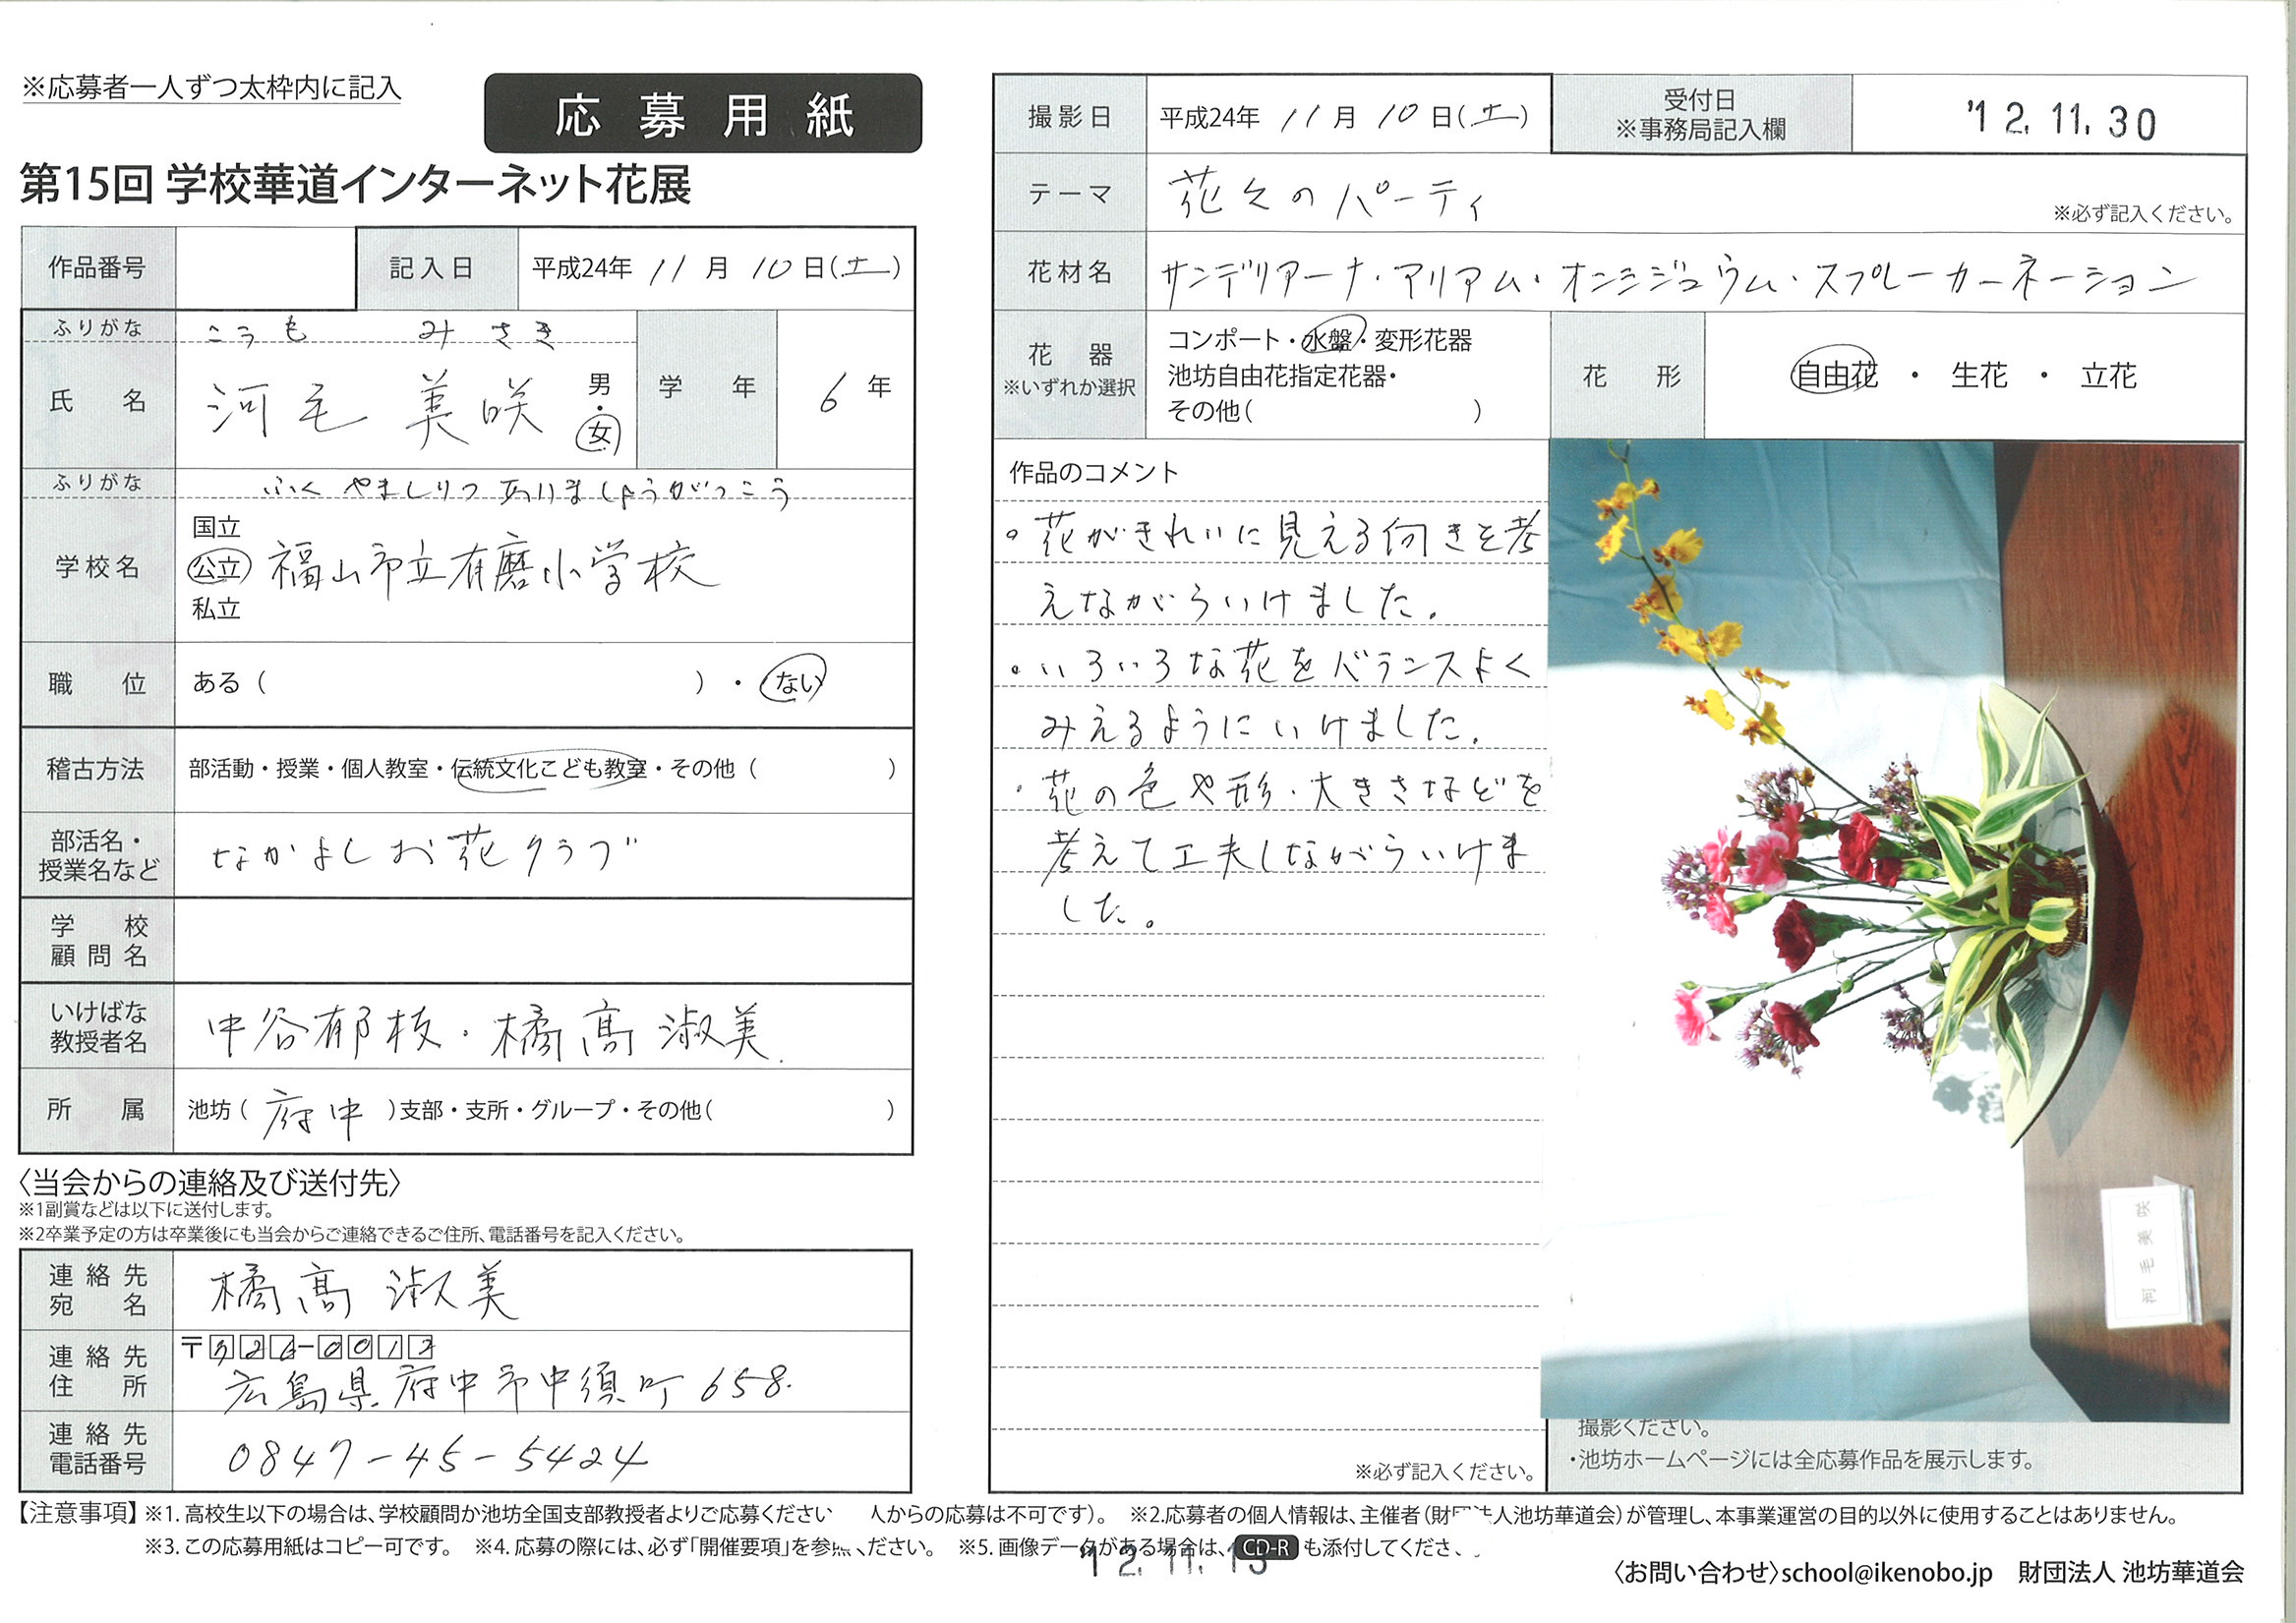 ※応募者一人ずつ太枠内に記入
応募用紙
第15回 学校華道インターネット花展
作品番号
記入日 平成24年 11月 10日(土)
ふりがな こうも みさき
氏名 河毛 美咲 男・女
学年 6年
ふりがな ふくやましりつ ありましょうがっこう
学校名 国立 公立 私立 福山市立有磨小学校
職位 ある( )・ない
稽古方法 部活動・授業・個人教室・伝統文化こども教室・その他( )
部活名・授業名など なかよしお花クラブ
学校顧問名
いけばな教授者名 中谷郁枝・橘髙淑美
所属 池坊(府中)支部・支所・グループ・その他( )
〈当会からの連絡及び送付先〉
※1副賞などは以下に送付します。
※2卒業予定の方は卒業後にも当会からご連絡できるご住所、電話番号を記入ください。
連絡先宛名 橘髙 淑美
連絡先住所 〒726-0013
広島県府中市中須町658.
連絡先電話番号 0847-45-5424
撮影日 平成24年 11月 10日(土)
受付日 ※事務局記入欄 '12.11.30
テーマ 花々のパーティ
※必ず記入ください。
花材名 サンデリアーナ・アリアム・オンシジュウム・スプレーカーネーション
花器 ※いずれか選択
コンポート・水盤・変形花器
池坊自由花指定花器・
その他( )
花形 自由花・生花・立花
作品のコメント
・花がきれいに見える向きを考
えながらいけました。
・いろいろな花をバランスよく
みえるようにいけました。
・花の色や形・大きさなどを
考えて工夫しながらいけま
した。
※必ず記入ください。
河毛美咲
撮影ください。
・池坊ホームページには全応募作品を展示します。
【注意事項】※1. 高校生以下の場合は、学校顧問か池坊全国支部教授者よりご応募ください 人からの応募は不可です)。 ※2.応募者の個人情報は、主催者(財団法人池坊華道会)が管理し、本事業運営の目的以外に使用することはありません。
※3. この応募用紙はコピー可です。 ※4. 応募の際には、必ず「開催要項」を参照ください。 ※5. 画像データがある場合は、CD-Rも添付してくださ
'12.11.13
〈お問い合わせ〉school@ikenobo.jp 財団法人 池坊華道会